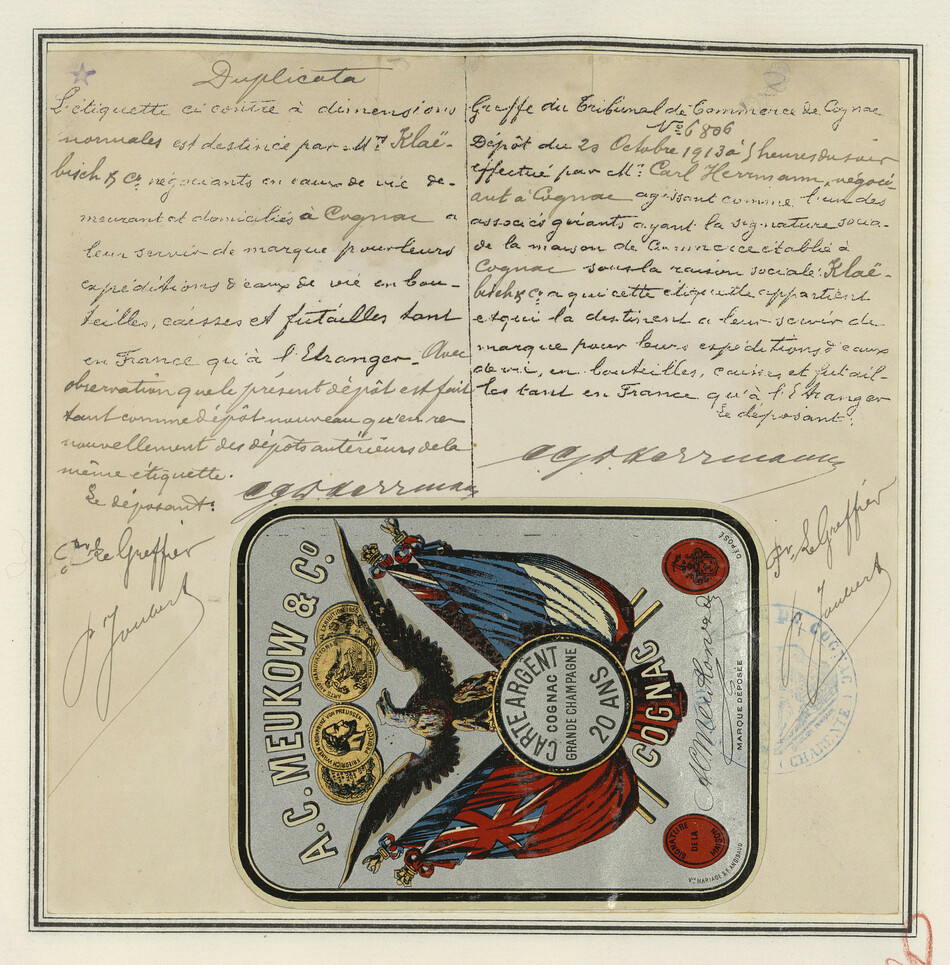 Duplicata
L'étiquette ci contre à dimensions
normales est destinée par Mrs Klaë-
bisch & Co négociants en eaux de vie de-
meurant et domiciliés à Cognac a
leur servir de marque pour leurs
expéditions d'eaux de vie en bou-
teilles, caisses et futailles tant
en France qu'à l'Etranger. Avec
observation que le présent dépôt est fait
tant comme dépôt nouveau qu'en re-
nouvellement des dépôts antérieurs de la
même étiquette.
Le déposant:
Le Greffier
Joubert
Greffe du Tribunal de Commerce de Cognac
No 6806
Dépôt du 20 Octobre 1913 à 5 heures du soir
effectué par Mr. Carl Herrmann, négoci-
ant à Cognac agissant comme l'un des
associés gérants ayant la signature socia-
de la maison de Commerce établie à
Cognac sous la raison sociale: Klaë-
bisch & Co a qui cette étiquette appartient
et qui la destinent a leur servir de
marque pour leurs expéditions d'eaux
de vie, en bouteilles, caisses et futail-
les tant en France qu'à l'Etranger
Le déposant:
Herrmann
Pr. Le Greffier
Joubert
A.C. MEUKOW & Co.
FRIEDRICH WILHELM KRONPRINZ VON PREUSSEN
CARTE ARGENT
COGNAC
GRANDE CHAMPAGNE
20 ANS
COGNAC
DÉPOSÉ
A.C. Meukow & Co
MARQUE DÉPOSÉE
SIGNATURE
DE LA
MAISON
COGNAC
CHARENTE